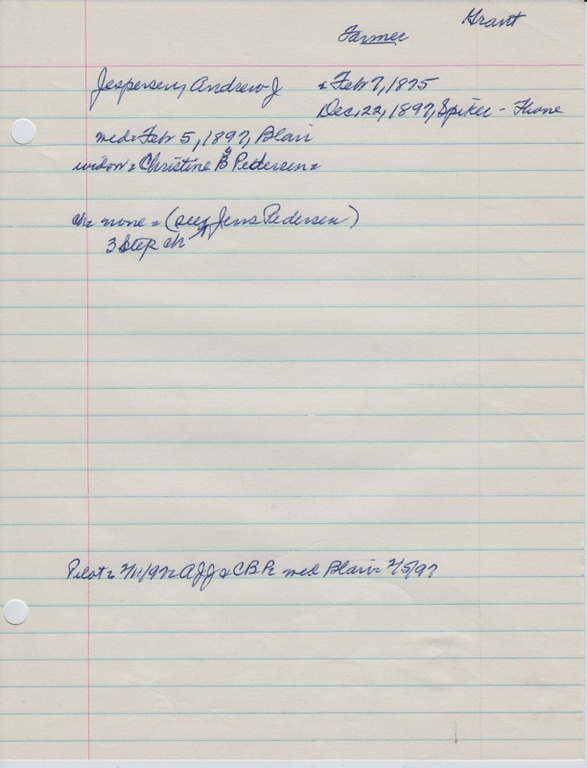 Grant
Farmer
Jespersen, Andrew J = Feb 7, 1875
Dec. 22, 1897, Spiker - Home
med = Feb 5, 1897, Blair
widow = Christine B Pettersen =
ch = none = (see Jens Pedersen)
3 step ch
Pilot = 2/11/97 = AJJ & CBP = med Blair = 2/5/97